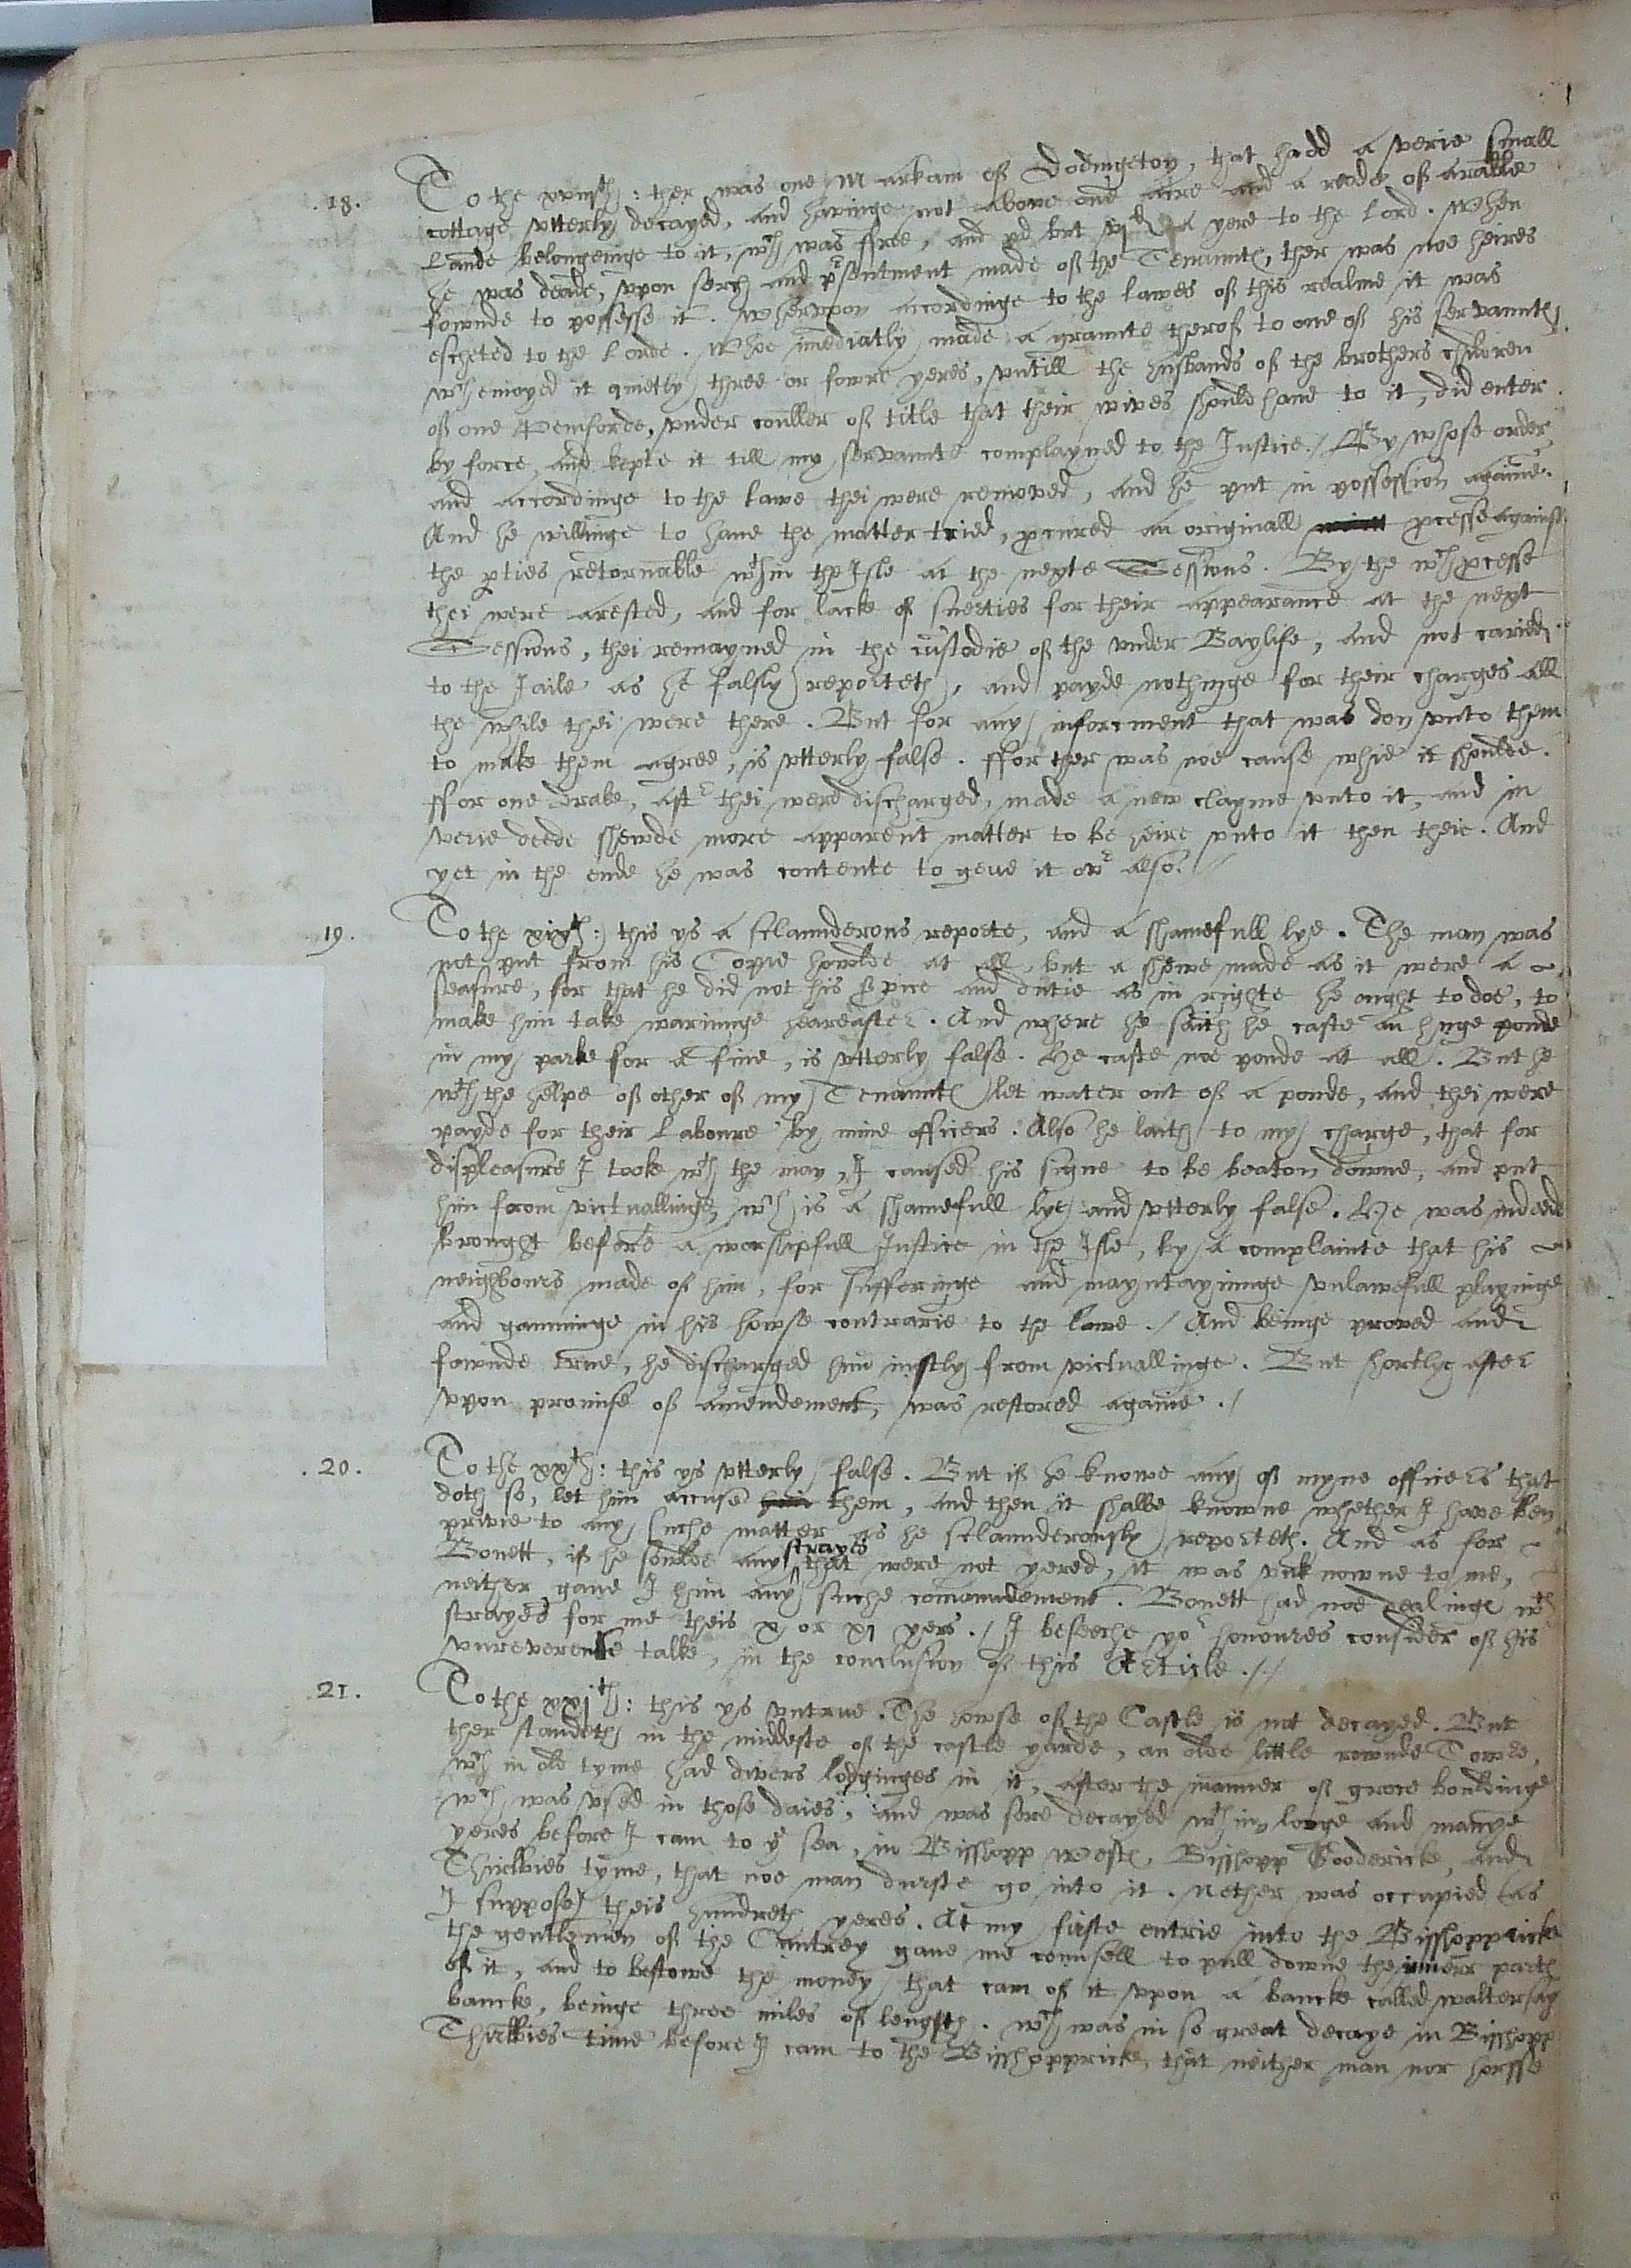 .18. To the xviijth: ther was one Markam of Dodingeton, that hadd a verie small
cottage vtterly decayed, and havinge not above one acre and a roode of arable
Lande belongeinge to it, wch was ffree, and pd but vjd a yere to the Lord. When
he was deade, vpon serch and psentment made of the Tenauntes, ther was noe heires
fownde to possesse it. Whervpon accordinge to the lawes of this realme it was
escheted to the Lorde. Whoe imediatly made a graunte therof to one of his servauntes,
wch enioyed it quietly three or fowre yeres, vntill the husbands of the brothers children
of one Pemforde, vnder couller of title that their wives should haue to it, did enter
by force, and kepte it till my servaunte complayned to the Justice./ By whose order
and accordinge to the lawe thei were removed, and he put in possession againe.
And he willinge to haue the matter tried, pcured an originall pcesse against
the pties retornable wthin the Isle at the nexte Sessions. By the wch pcesse
thei were arested, and for lacke of suerties for their appearance at the next
Sessions, thei remayned in the custodie of the vnder Baylife, and not caried
to the Jaile as he falsly reporteth, and payde nothinge for their charges all
the while thei were there. But for any inforcment that was don vnto them
to make them agree, is vtterly false. ffor ther was noe cause whie it shoulde.
ffor one Drake, aftr thei were discharged, made a new clayme vnto it, and in
verie deede shewde more apparent matter to be heire vnto it then theie. And
yet in the ende he was contente to geue it ovr also.//
19. To the xixth: this ys a sclaunderous reporte, and a shamefull lye. The man was
not put from his Copie howlde at all, but a shewe made as it were a
seasure, for that he did not his svice and dutie as in righte he ought to doe, to
make him take warninge heareafter. And where he saith he caste an huge ponde
in my parke for a fine, is vtterly false. He caste noe ponde at all. But he
wth the helpe of other of my Tenauntes let water out of a ponde, and thei were
payde for their Laboure by mine officers. Also he laith to my charge, that for
displeasure I tooke wth the man, I caused his signe to be beaton downe, and put
him from victuallinge, wch is a shamefull lye and vtterly false. He was indede
brought before a worshipfull Justice in the Isle, by a complainte that his
neighbours made of him, for sufferinge and mayntayninge vnlawefull playinge
and gamminge in his howse contrarie to the lawe./ And beinge proved and
fownde true, he discharged him iustly from victuallinge. But shortlye after
vpon promise of amendement, was restored againe./
.20. To the xxth: this ys vtterly false. But if he knowe any of myne officers that
doth so, let him accuse him them, and then it shalbe knowne whether I have ben
privie to any suche matter as he sclaunderously reporteth. And as for
Bonett, if he soulde any strayes that were not yered, it was vnknowne to me,
neither gaue I him any suche comaundement. Bonett had noe dealinge wth
strayes for me theis x or xj yers./ I beseeche yor honoures consider of his
vnreverente talke, in the conclusion of this Article.//
21. To the xxjth: this ys vntrue. The howse of the Castle is not decayed. But
ther standeth in the middeste of the castle yarde, an olde little rownde Towre,
wch in old tyme had divers lodginges in it, after the manner of grose bouldinge
wch was vsed in those daies, and was sore decayed wthin, longe and manye
yeres before I cam to ye sea, in Bisshopp Westes, Bisshopp Gooderickes, and
Thirlbies tyme, that noe man durste go into it. Nether was occupied (as
I suppose) theis hundreth yeres. At my firste entrie into the Bisshoppricke
the gentlemen of the Cuntrey gaue me counsell to pull downe the inner parts
of it, and to bestowe the money that cam of it vpon a bancke called waltersay
bancke, beinge three miles of length. wch was in so great decaye in Bisshopp
Thirlbies time before I cam to the Bisshoppricke, that neither man nor horsse